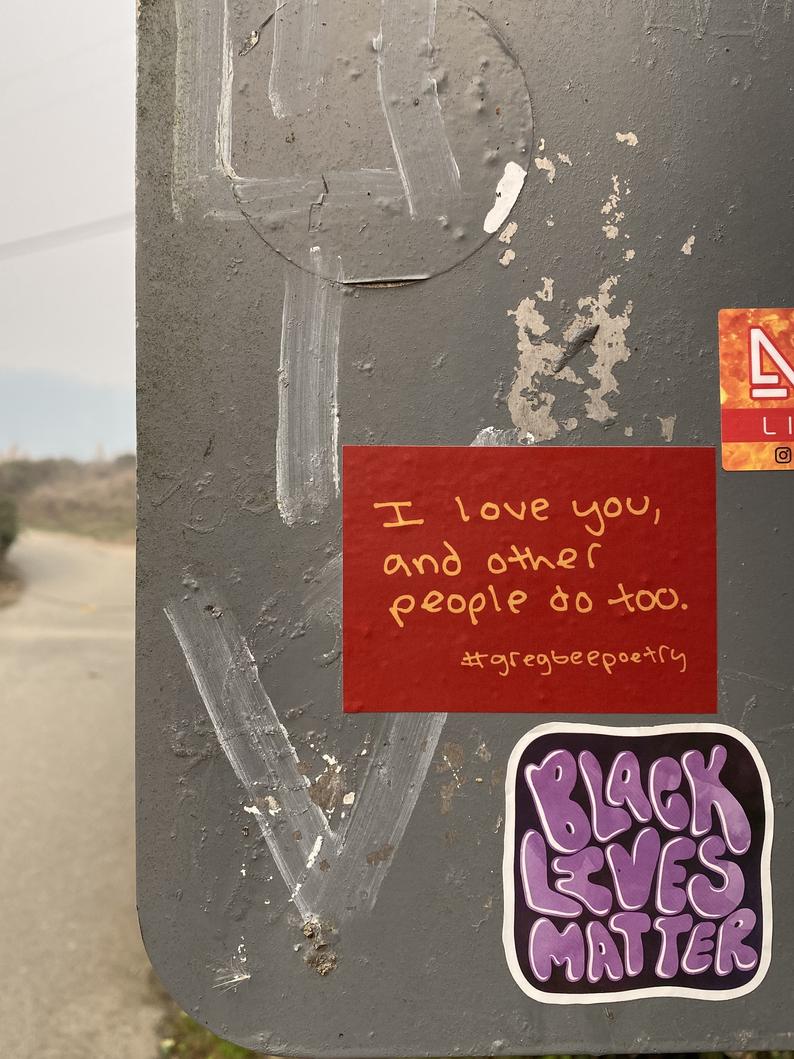 I love you,
and other
people do too.
#gregbeepoetry
BLACK
LIVES
MATTER